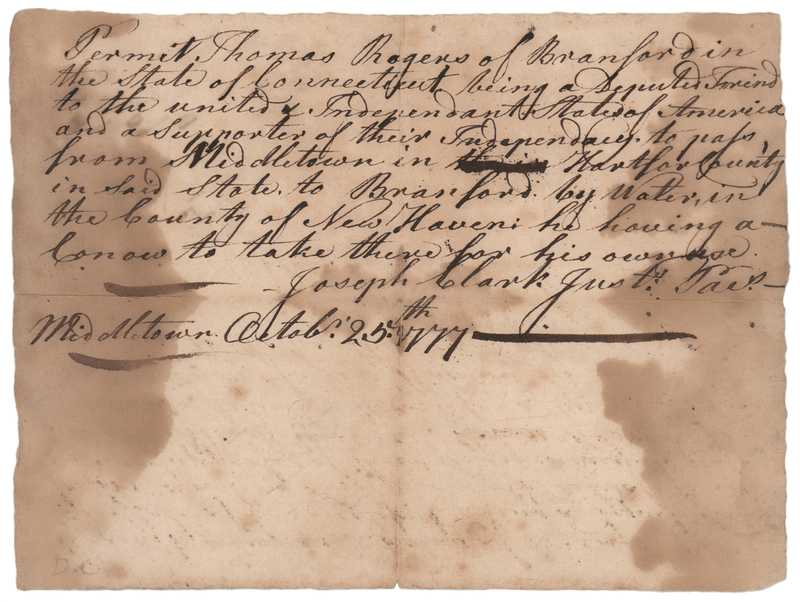 Permit Thomas Rogers of Branford in
the State of Connecticut, being a Deputed Frind
to the united & Independant States of America
and a Supporter of their Independacy. to pass
from Middletown in Hartford County
in said State. to Branford. by Water, in
the County of New Haven: he having a
Conow to take there for his own use.
Joseph Clark Just.s Paes.
Middletown. Octob.r 25.th 1777
D C